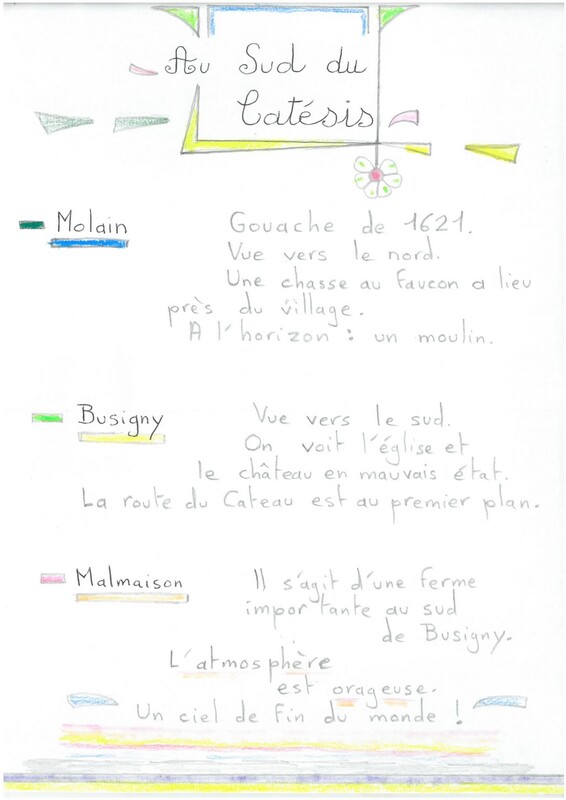 Au Sud du
Catésis
Molain Gouache de 1621.
Vue vers le nord.
Une chasse au faucon a lieu
près du village.
A l'horizon : un moulin.
Busigny Vue vers le sud.
On voit l'église et
le château en mauvais état.
La route du Cateau est au premier plan.
Malmaison Il s'agit d'une ferme
importante au sud
de Busigny.
L'atmosphère
est orageuse.
Un ciel de fin du monde !